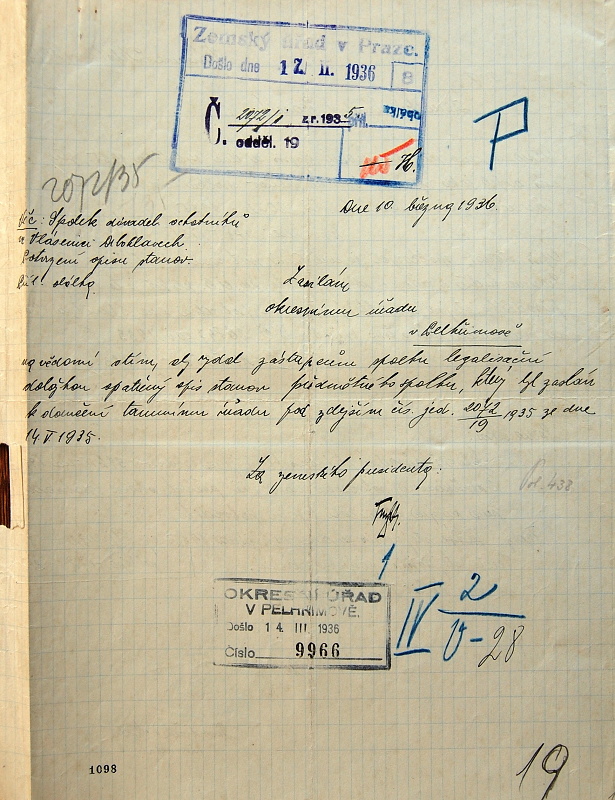 Zemský úřad v Praze.
Došlo dne 17. II. 1936 8
Č. 2072/i z r. 1935
odděl. 19
P
2072/35
Dne 10. března 1936.
Věc: Spolek divadel. ochotníků
Vlásenici
Potvrzení opisu stanov.
Zasílám
okresnímu úřadu
v Pelhřimově
na vědomí s tím, aby vydal zástupcům spolku legalisační
doložkou opatřený opis stanov předmětného spolku, který byl zaslán
k doručení tamnímu úřadu pod zdejším čís. jed. 2072/19 1935 ze dne
14. V. 1935.
Za zemského presidenta:
Pol. 438
OKRESNÍ ÚŘAD
V PELHŘIMOVĚ.
Došlo 14. III. 1936
Číslo 9966
IV 2
V-28
1098
19